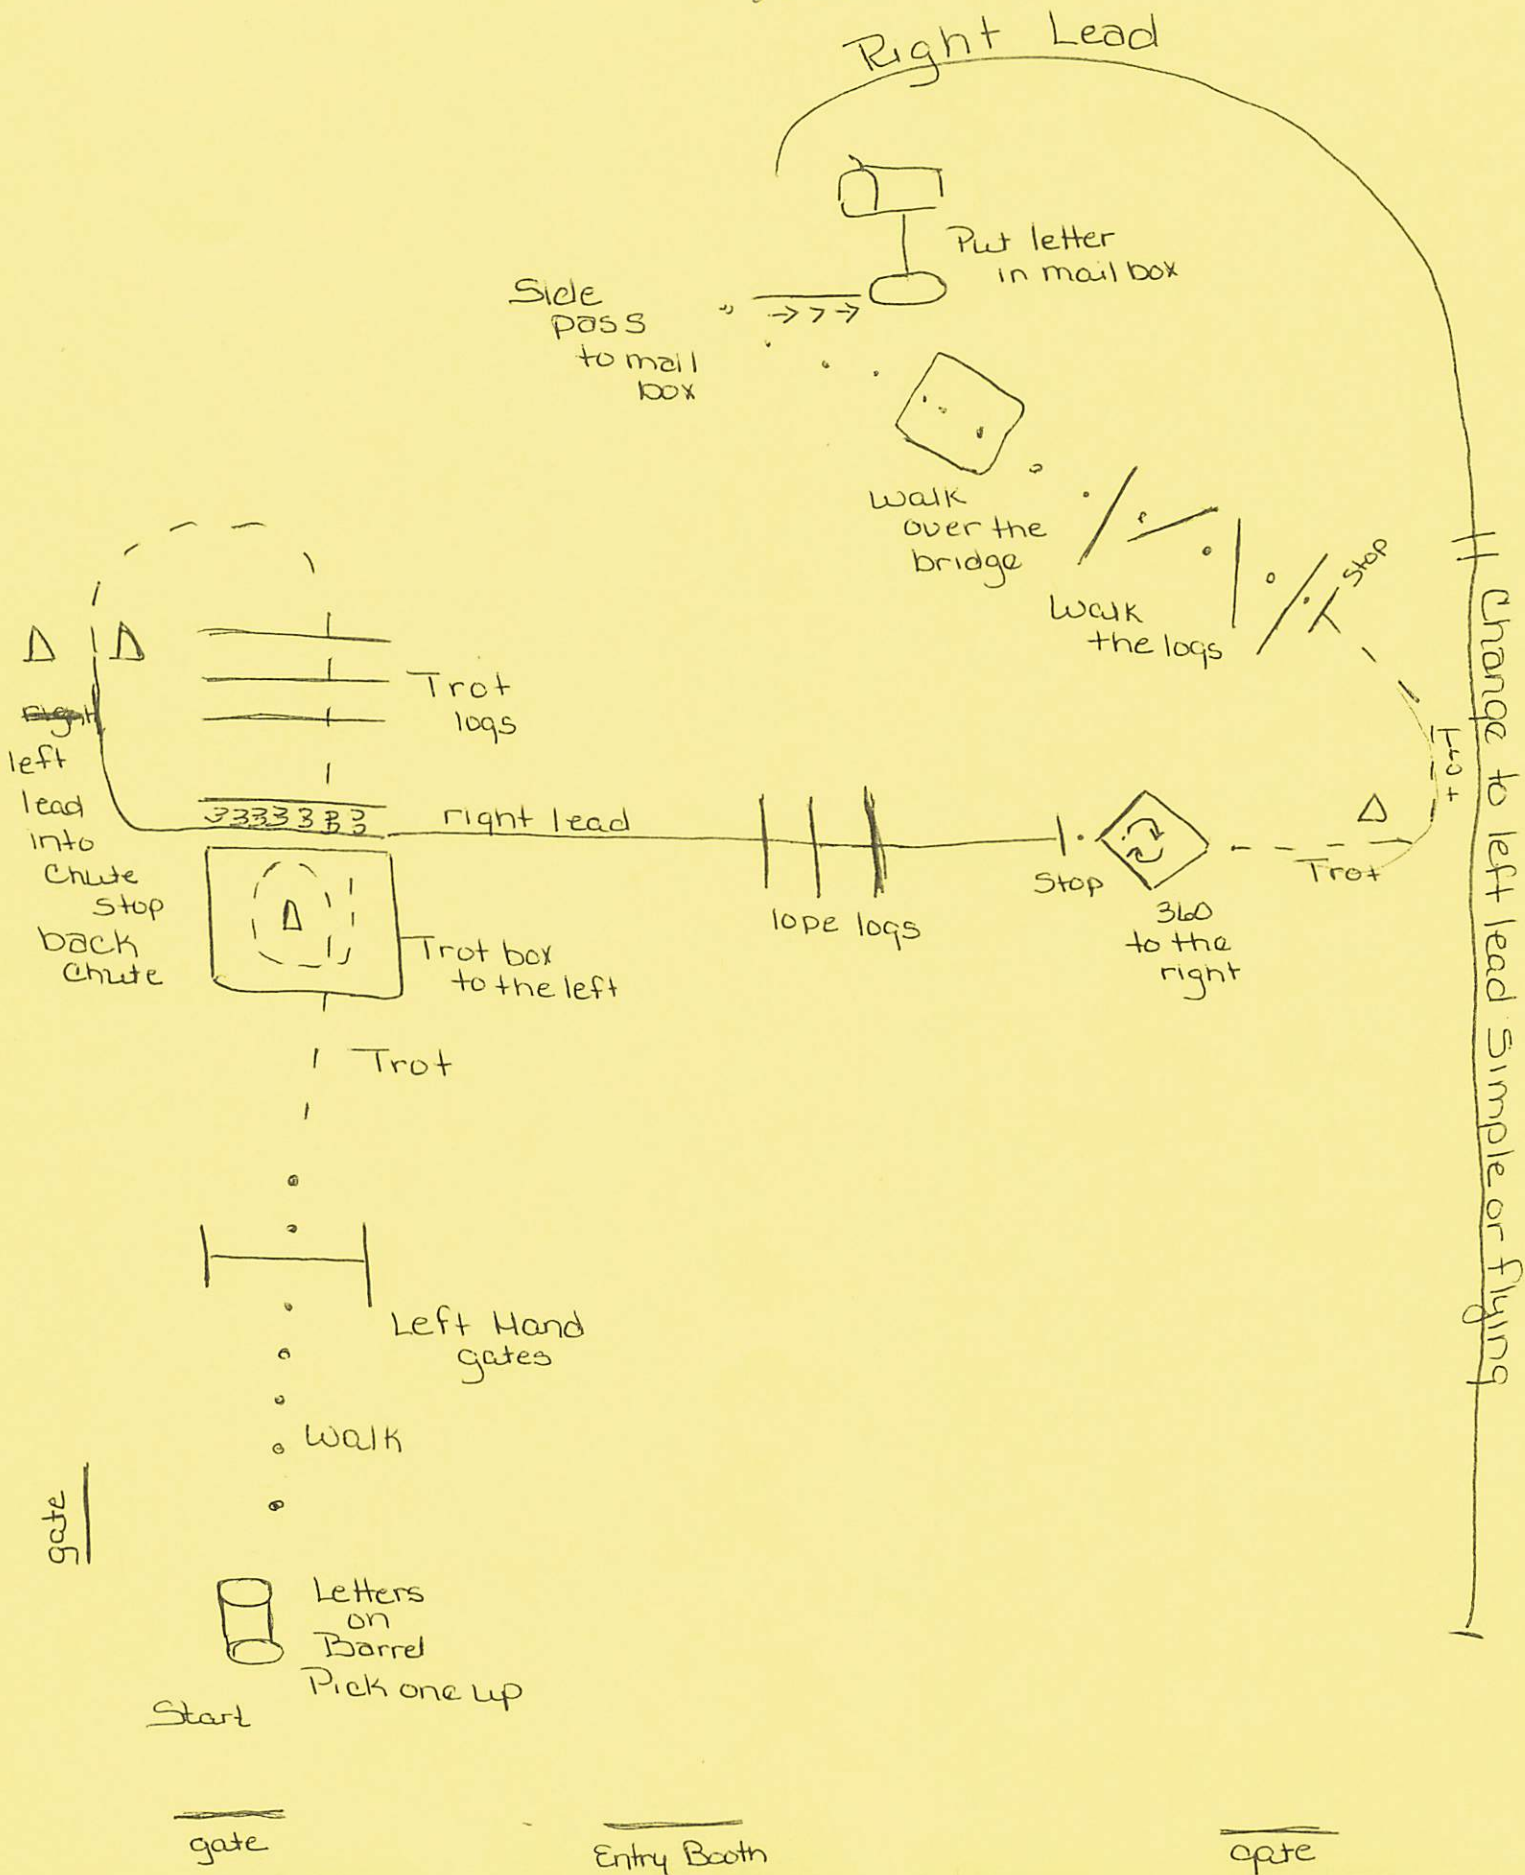 Right Lead
Put letter
in mail box
Side
pass
to mail
box
Walk
over the
bridge
Stop
Walk
the logs
Change to left lead Simple or flying
Trot
logs
left
lead
into
Chute
stop
back
Chute
Trot
right lead
Stop
Trot
lope logs
360
to the
right
Trot box
to the left
Trot
Left Hand
gates
Walk
gate
Letters
on
Barrel
Pick one up
Start
gate
Entry Booth
gate